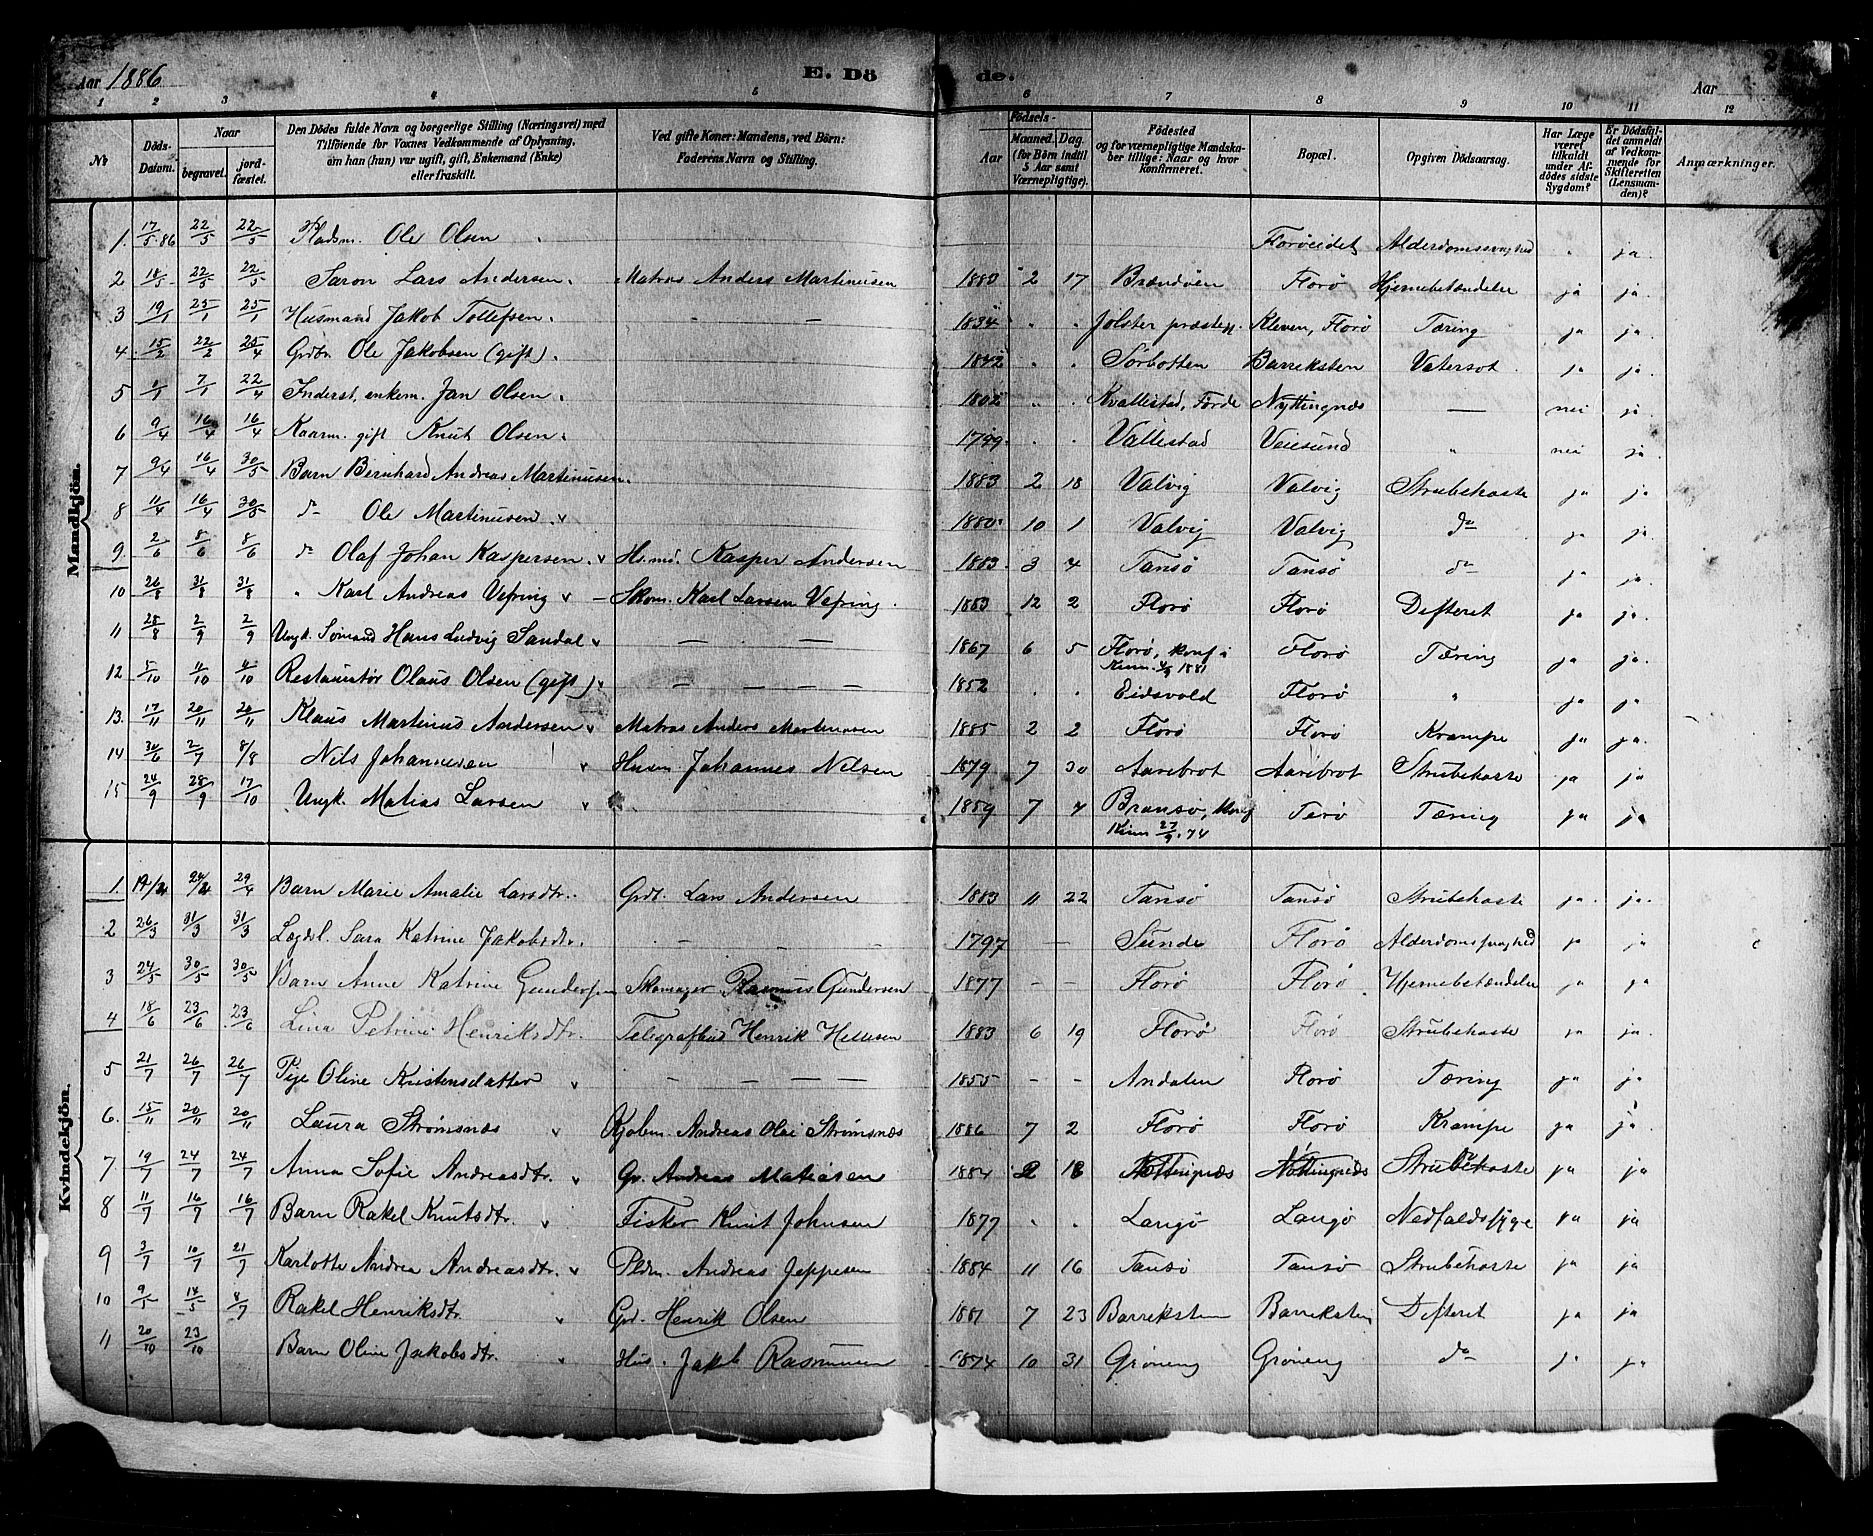 Aar 1886 E. Dö de. Aar
1 2 3 4 5 6 7 8 9 10 11 12
№ Döds-Datum. Naar begravet. jord-fæstet. Den Dödes fulde Navn og borgerlige Stilling (Næringsvei) med Tilföiende for Voxnes Vedkommende af Oplysning, om han (hun) var ugift, gift, Enkemand (Enke) eller fraskilt. Ved gifte Koner: Mandens, ved Börn: Faderens Navn og Stilling. Födsels- Aar Maaned. Dag. (for Börn indtil 5 Aar samt Værnepligtige). Födested og for værnepligtige Mandska-ber tillige: Naar og hvor konfirmeret. Bopæl. Opgiven Dödsaarsag. Har Læge været tilkaldt under Af-dödes sidste Sygdom? Er Dödsfal-det anmeldt af Vedkom-mende for Skifteretten (Lensman-den)? Anmærkninger.
Mandkjön.
1. 17/5 86 22/5 22/5 Pladsm. Ole Olsen Florøeidet Alderdomssvaghed ja.
2 18/5 22/5 22/5 Saron Lars Andersen. Matros Anders Martinusen 1883 2 17 Brandøen Florø Hjernebetændelse ja ja.
3 19/1 25/1 25/1 Husmand Jakob Tollefsen. — — 1834 Jolster præstegj. Kleven, Florø Tæring ja ja.
4. 15/2 22/2 25/4 Grdbr. Ole Jakobsen (gift). 1842 Sørbotten Barreksten Vatersot ja ja.
5 7/1 22/4 Inderst. enkem. Jan Olsen. 1802 Kvallestad, Førde Nyttingnæs — nei ja.
6 9/4 16/4 16/4 Kaarm. gift Knut Olsen. 1799 Vallestad Veiesund " nei ja.
7 9/4 16/4 30/5 Barn Bernhard Andreas Martinusen. 1883 2 18 Valvig Valvig Strubehoste ja ja
8 11/4 16/4 30/5 do Ole Martinusen. 1880 10 1 Valvig Valvig do ja ja.
9. 2/6 8/6 8/6 do Olaf Johan Kaspersen. Hs.md. Kasper Andersen 1883 3 4 Tansø Tansø do ja ja.
10 26/8 31/8 31/8 " Karl Andreas Vefring — Skom. Karl Larsen Vefring. 1883 12 2 Florø Florø Difterit ja ja.
11 28/8 2/9 2/9 Ungk. Sømand Hans Ludvig Sandal — — — 1867 6 5 Florø, konf i Kinn 1881 Florø Tæring ja ja.
12 5/10 11/10 11/10 Restauratør Olaus Olsen (gift) — — — — 1852 Eidsvold Florø " ja ja
13. 17/11 20/11 20/11 Klaus Martinus Andersen Matros Anders Martinusen 1885 2 2 Florø Florø Krampe ja ja.
14 30/6 2/7 8/8 Nils Johannesen Husm. Johannes Nilsen 1879 7 30 Aarebrot Aarebrot Strubehoste ja ja
15. 24/9 28/9 17/10 Ungk. Matias Larsen 1859 7 4 Bransø, konf Kinn 27/9 74 Terø Tæring ja ja
Kvindekjön.
1. 24/4 29/4 Barn Marie Amalie Larsdtr. Grdb. Lars Andersen 1883 11 22 Tansø Tansø Strubehoste ja. ja.
2 26/3 31/3 31/3 Lægdsl. Sara Katrine Jakobsdtr. — — — 1797 — Sunde Florø Alderdomssvaghed ja ja
3 24/5 30/5 30/5 Barn Anne Katrine Gundersen Skomager Rasmus Gundersen 1877 — — Florø Florø Hjernebetændelse ja ja
4 18/6 23/6 23/6 Lina Petrine Henriksdtr. Telegrafbud Henrik Hellesen 1883 6 19 Florø Florø Strubehoste ja ja.
5 21/7 26/7 26/7 Pige Oline Kristensdatter — — — — 1855 — — Andalen Florø Tæring ja ja
6. 15/11 20/11 20/11 Laura Strømsnæs Kjøbm. Andreas Olai Strømsnæs 1886 7 2 Florø Florø Krampe ja ja
7. 19/7 24/7 24/7 Anna Sofie Andreasdtr. Gr. Andreas Matiasen 1884 2 18 Nøttingnæs Nøttingnæs Strubehoste ja ja
8 11/7 16/7 16/7 Barn Rakel Knutsdtr. Fisker Knut Johnsen 1877 Langø Langø Nedfaldssyge ja ja
9 3/7 10/7 21/7 Karlotte Andrea Andreasdtr. Pldm. Andreas Jeppesen 1884 11 16 Tansø Tansø Strubehoste ja ja
10 9/5 14/5 4/7 Rakel Henriksdtr. Grd. Henrik Olsen 1881 7 23 Barreksten Barreksten Difterit ja ja
11 20/10 23/10 Barn Oline Jakobsdtr. Hus. Jakob Rasmusen 1874 10 31 Grøneng Grøneng do ja